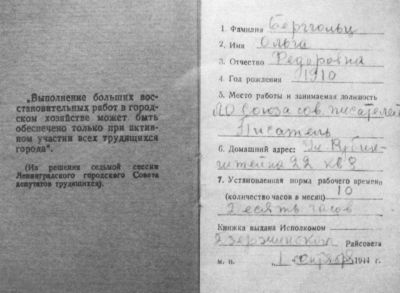 „Выполнение больших вос-
становительных работ в город-
ском хозяйстве может быть
обеспечено только при актив-
ном участии всех трудящихся
города“.
(Из решения седьмой сессии
Ленинградского городского Совета
депутатов трудящихся).
1. Фамилия Берггольц
2. Имя Ольга
3. Отчество Федоровна
4. Год рождения 1910
5. Место работы и занимаемая должность
ЛО Союза сов. писателей
Писатель
6. Домашний адрес: Ул. Рубин-
штейна 22 кв 8
7. Установленная норма рабочего времени
(количество часов в месяц) 10
Десять часов
Книжка выдана Исполкомом
Дзержинском Райсовета
м. п. 1 1944 г.